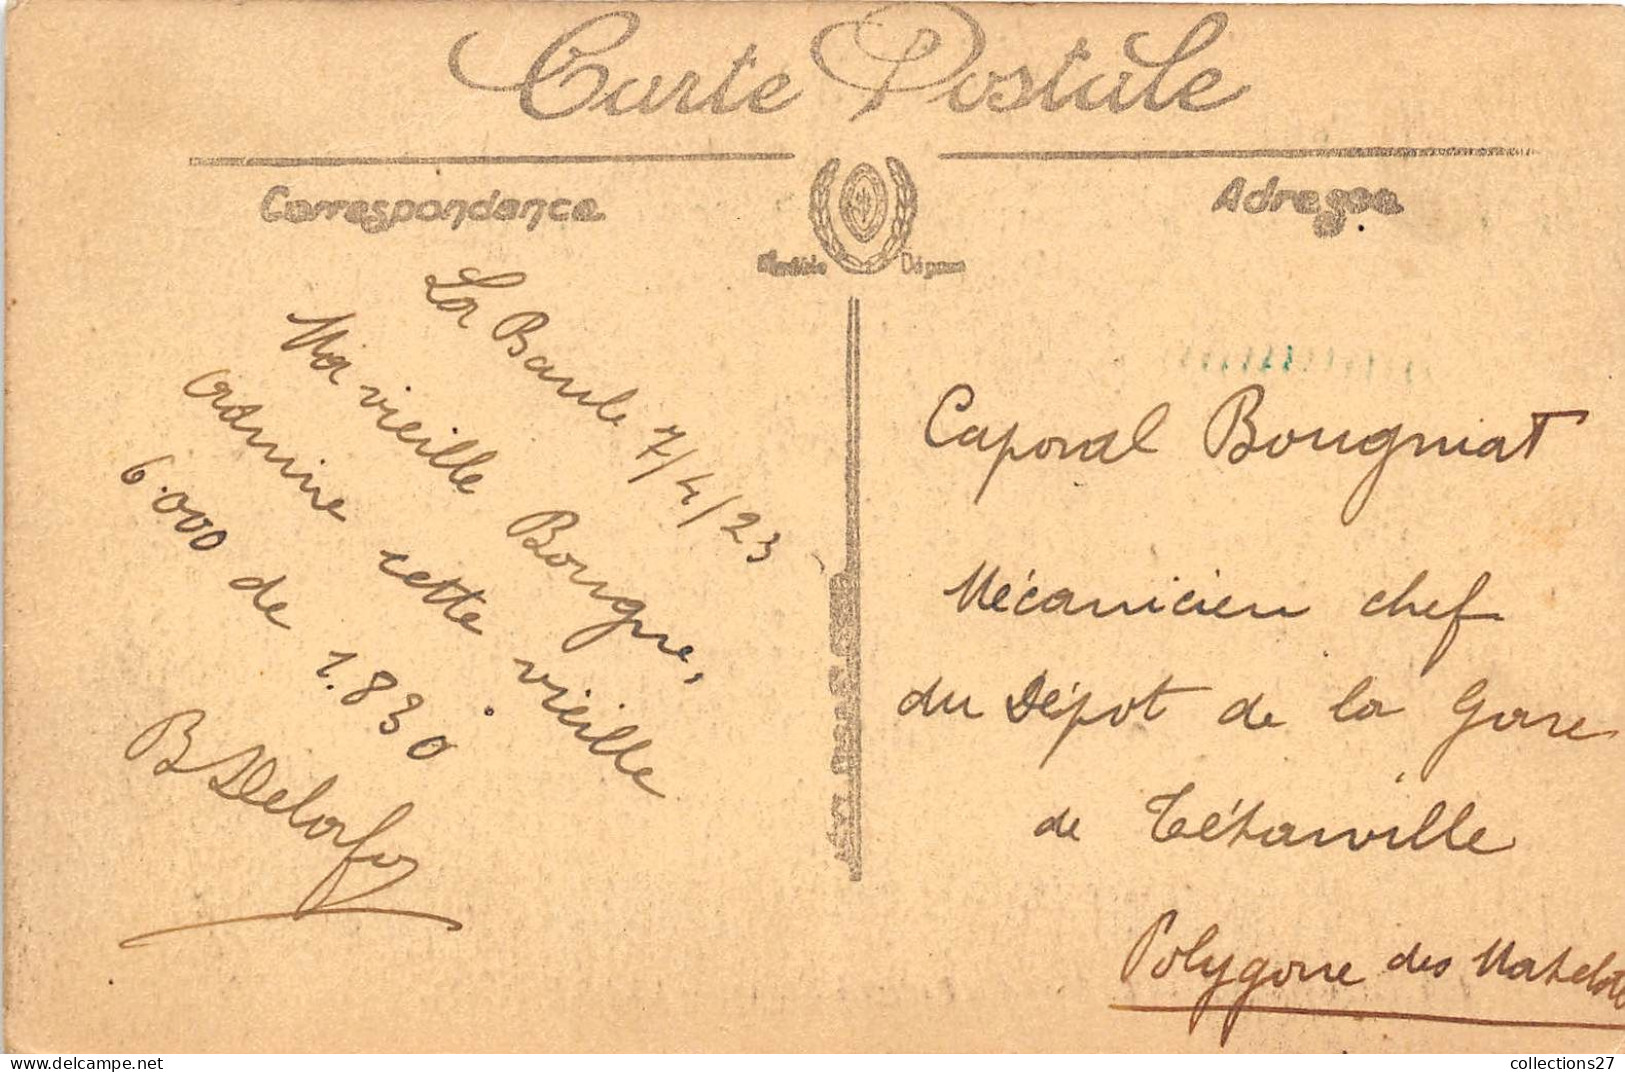 Carte Postale
Correspondance
Adresse
Modèle Déposé
La Baule 7/4/23
Ma vieille Bougne,
admire cette vieille
6.000 de 1.830.
B Delafoy
Caporal Bougniat
Mécanicien chef
du Dépôt de la Gare
de Tétainville
Polygone des Matelots
collections27